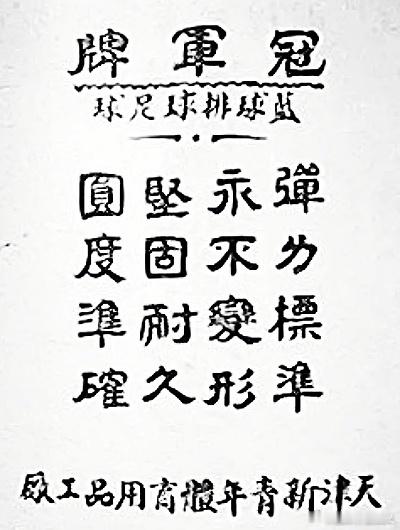 冠軍牌
籃球排球足球
彈力標準
永不變形
堅固耐久
圓度準確
天津新青年體育用品工廠